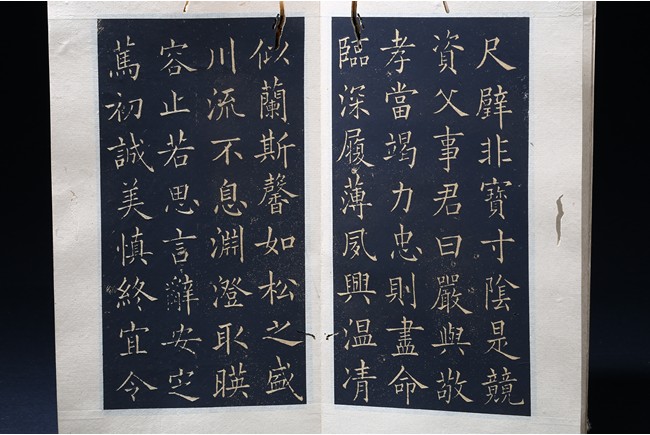 尺璧非寶寸陰是競
資父事君曰嚴與敬
孝當竭力忠則盡命
臨深履薄夙興温凊
似蘭斯馨如松之盛
川流不息淵澄取暎
容止若思言辭安定
篤初誠美慎終宜令